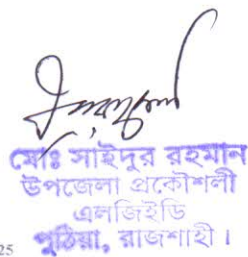 মোঃ সাইদুর রহমান
উপজেলা প্রকৌশলী
এলজিইডি
পুঠিয়া, রাজশাহী।
25